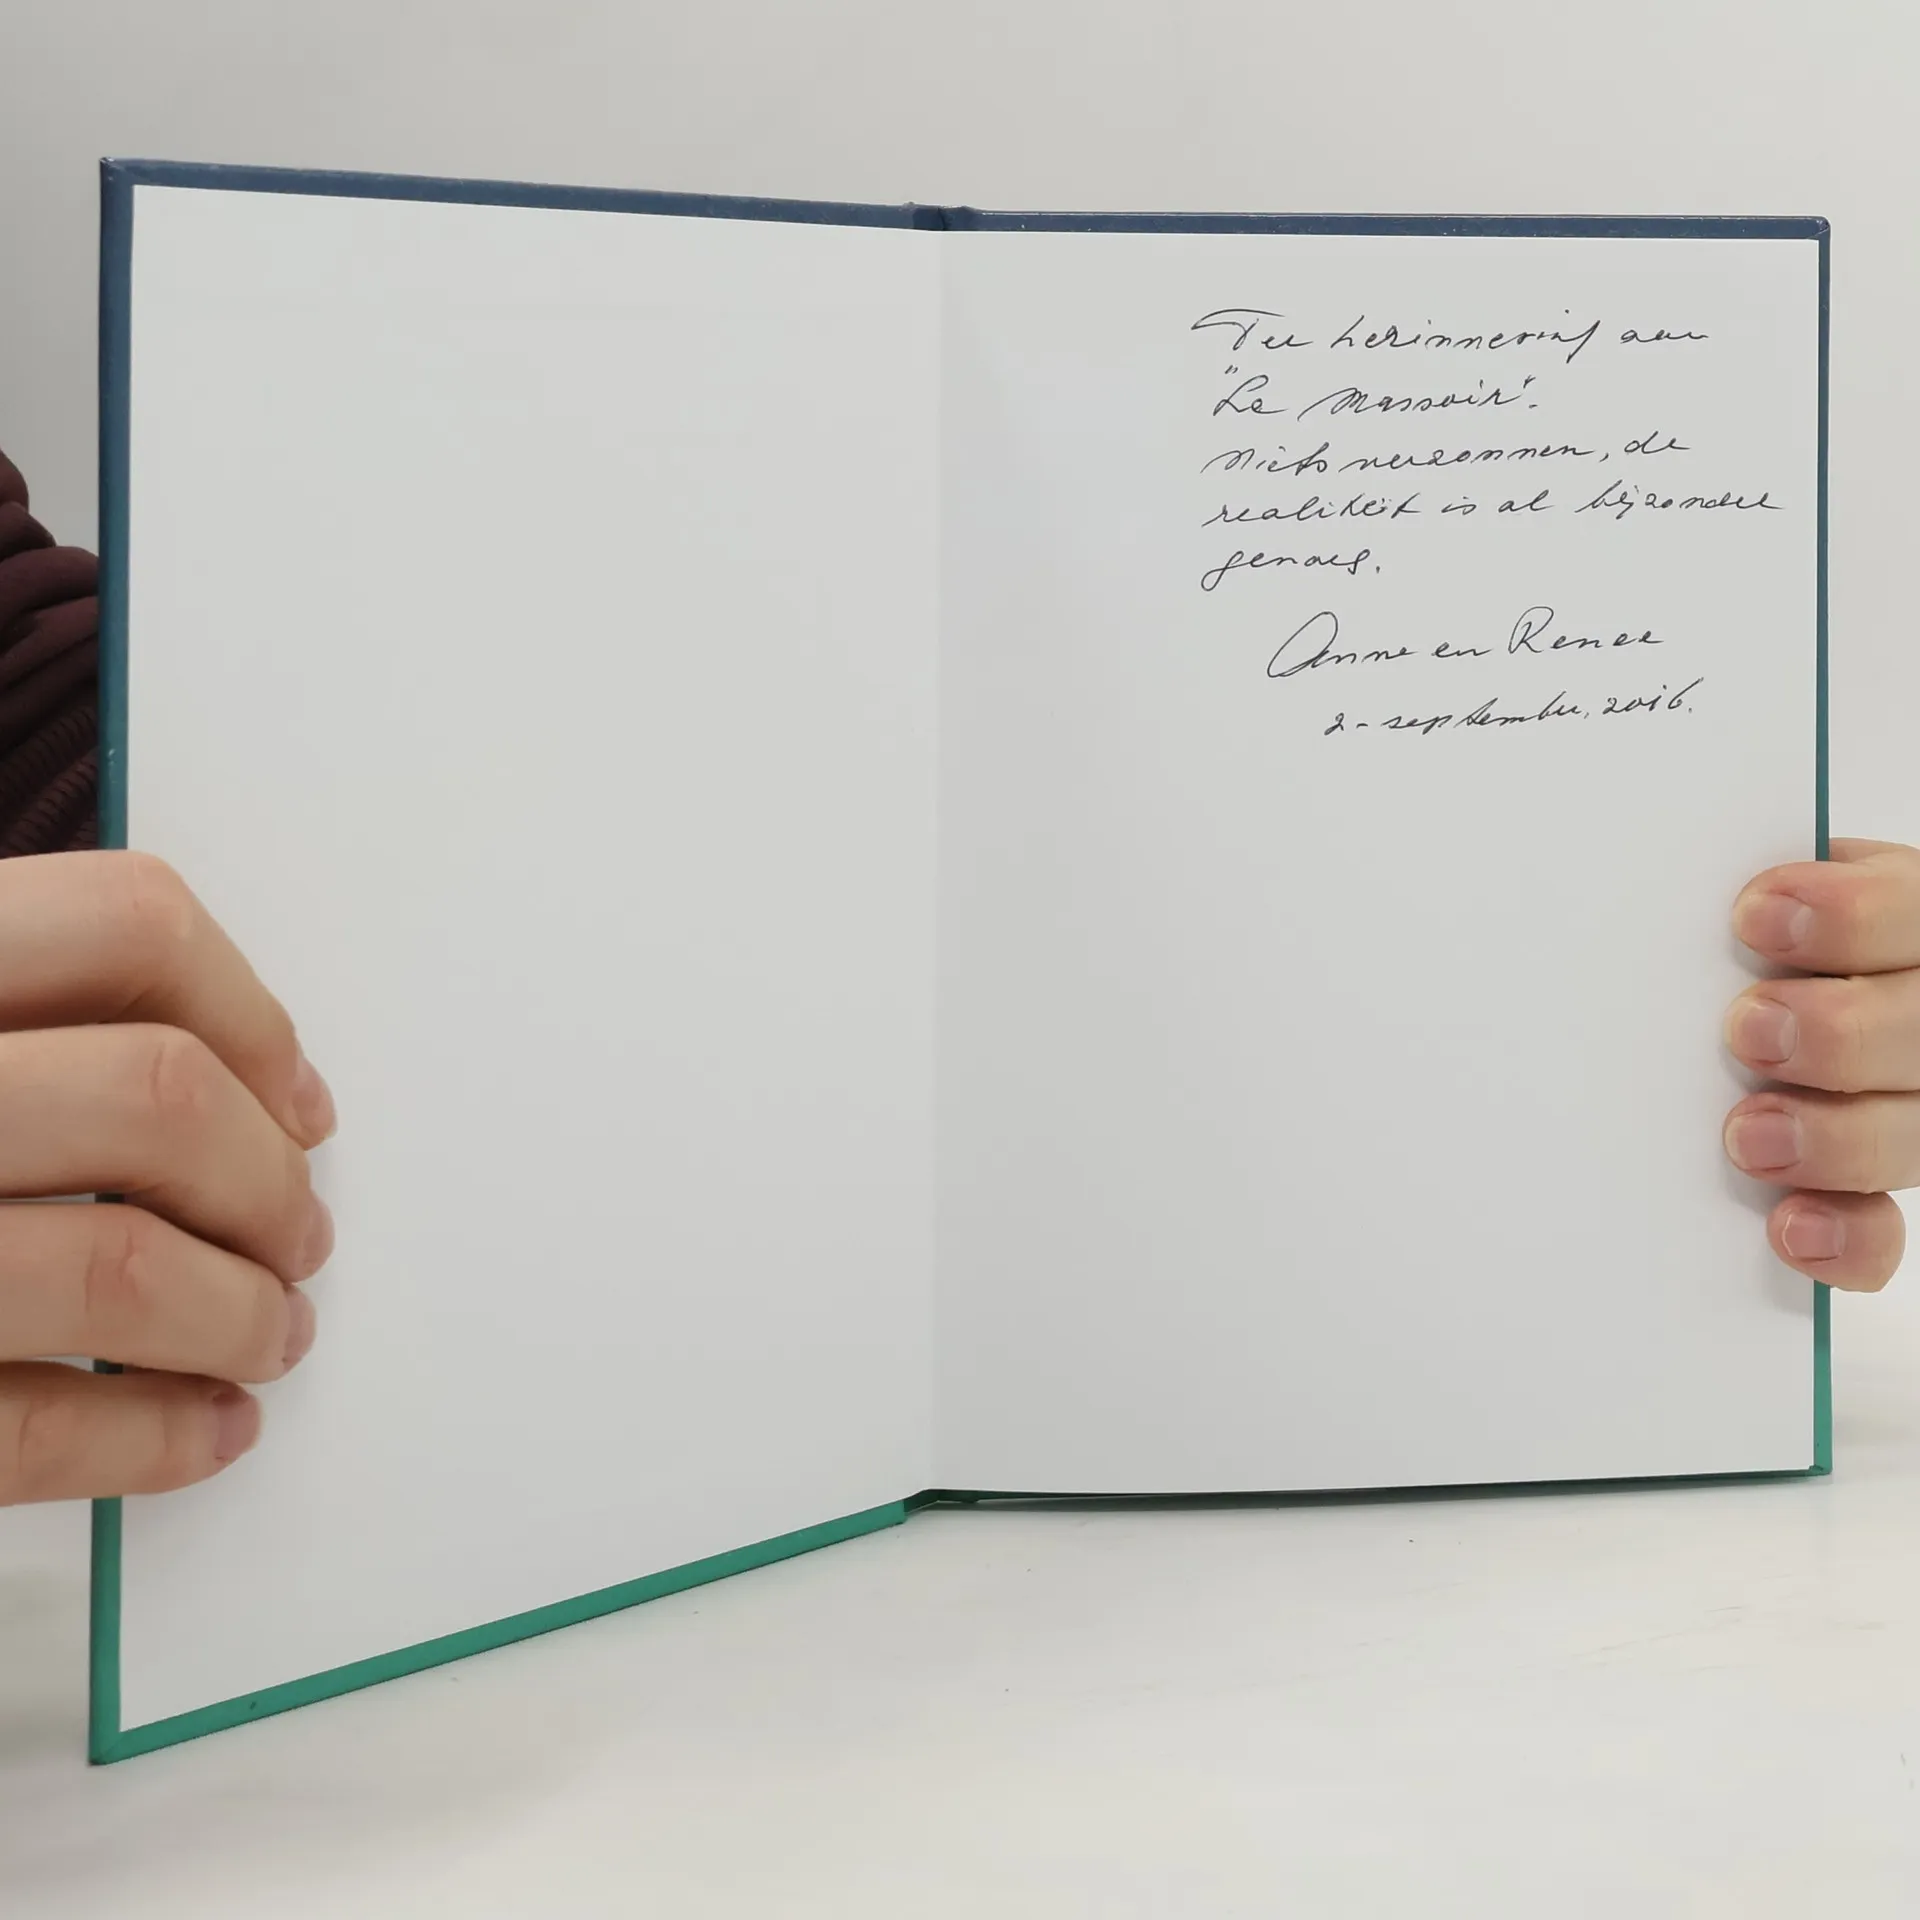 Ter herinnering aan
"La Massoir".
Niets verzonnen, de
realiteit is al bijzonder
genoeg.
Anne en Renee
2 - september, 2016.